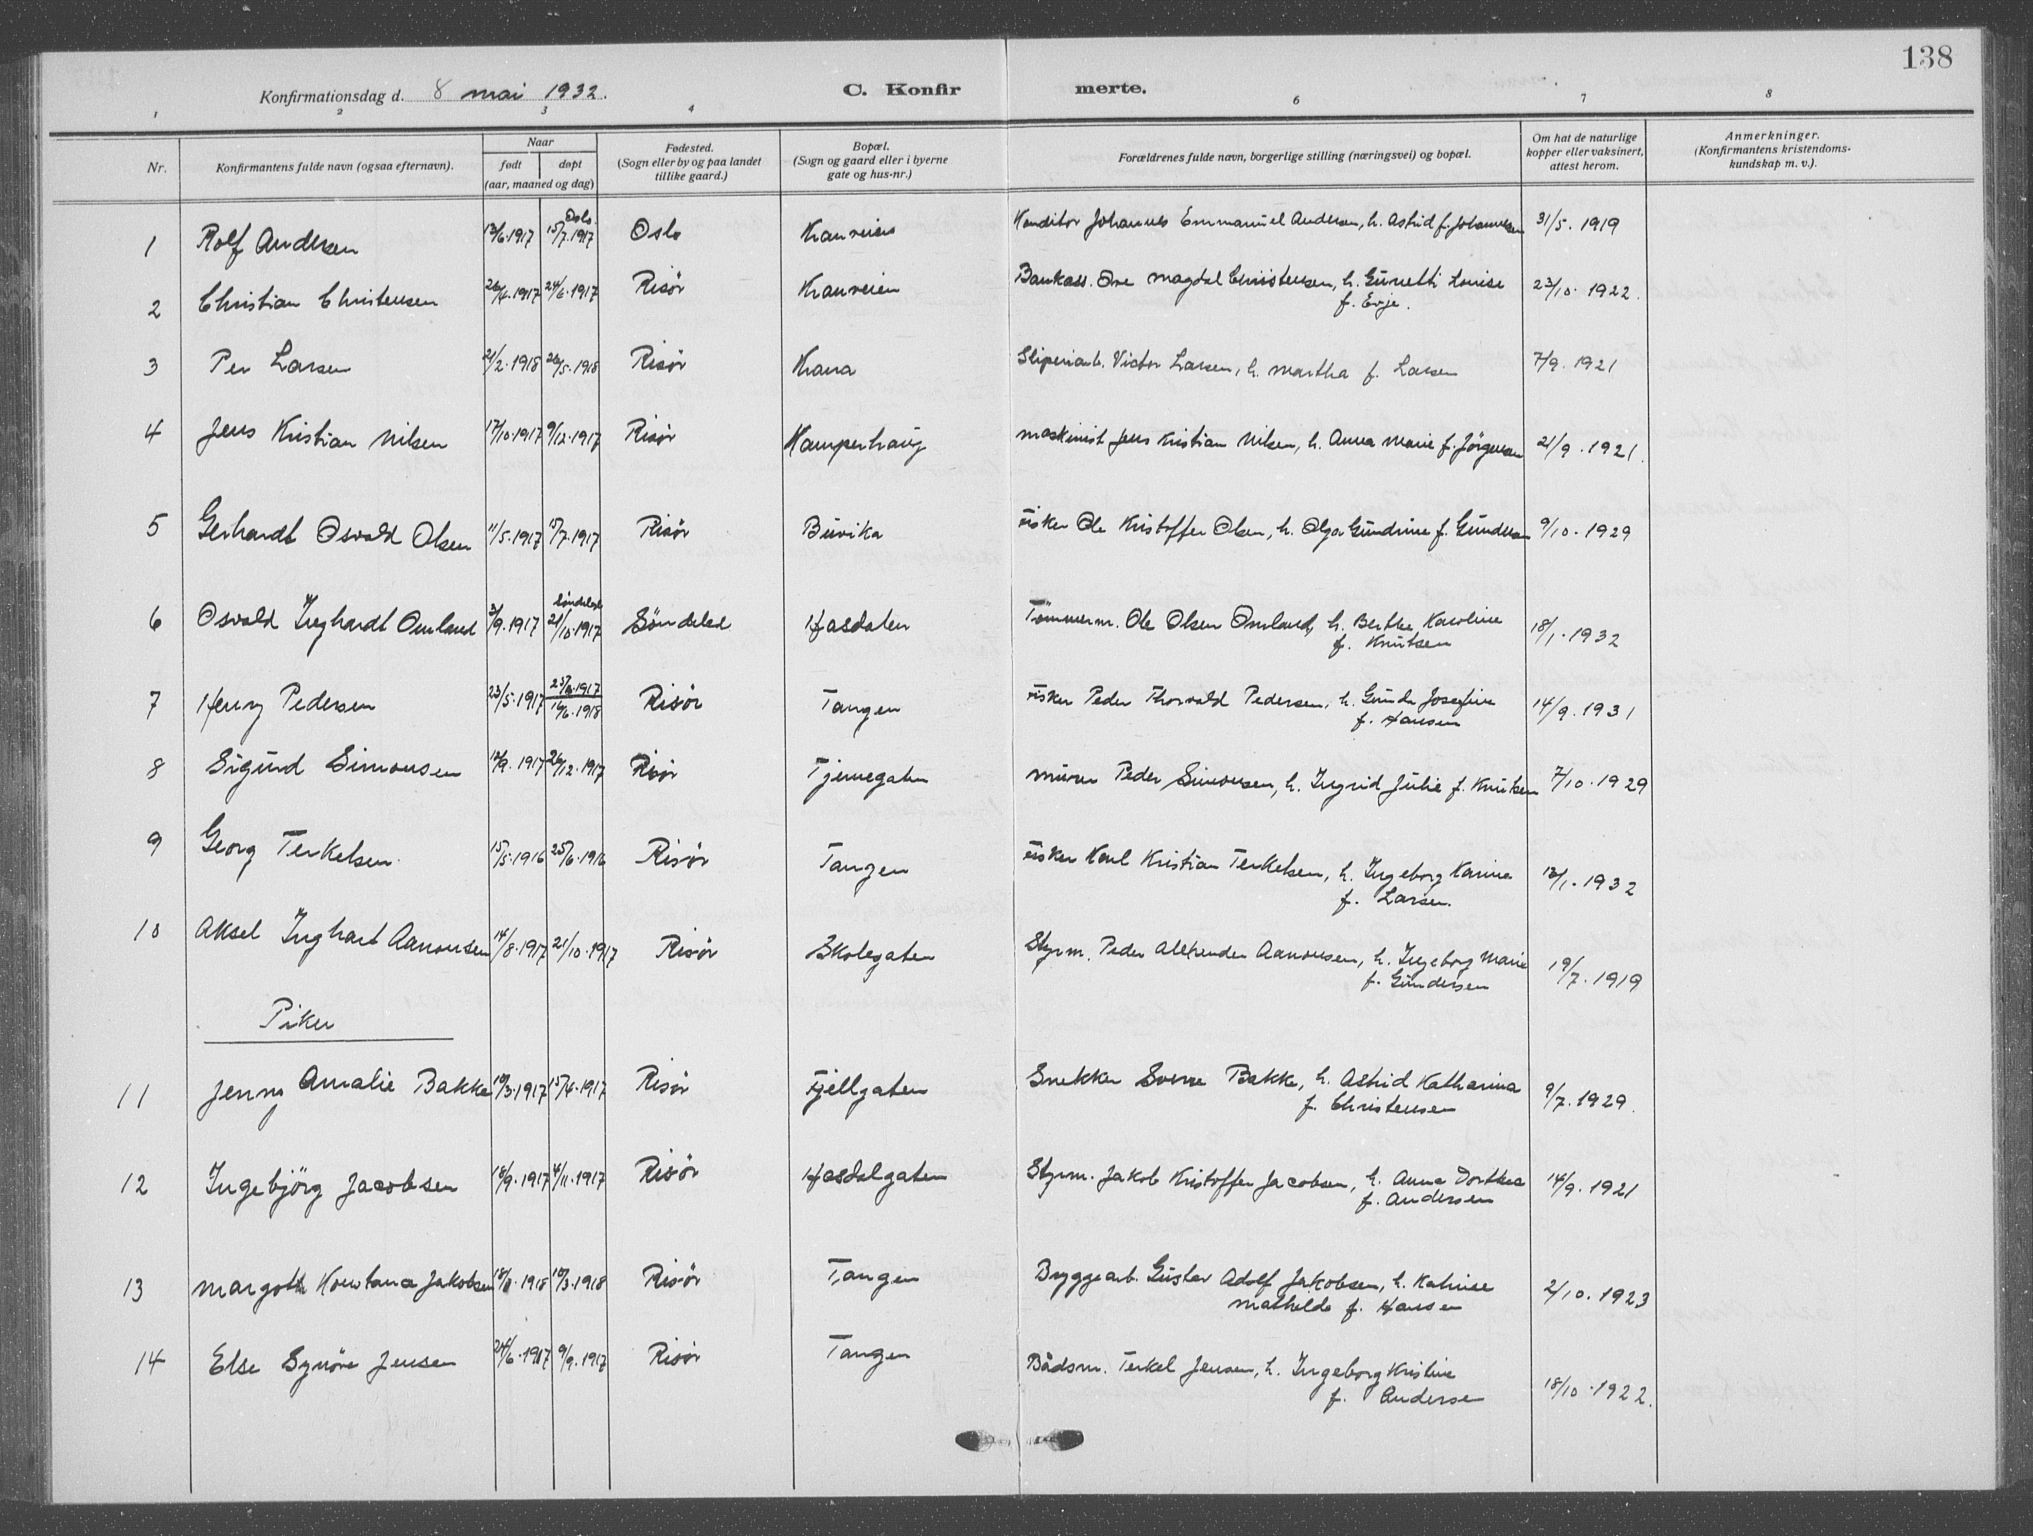 138
Konfirmationsdag d. 8 mai 1932. C. Konfirmerte.
1 2 3 4 6 7 8
Nr. Konfirmantens fulde navn (ogsaa efternavn). Naar født døpt (aar, maaned og dag) Fødested. (Sogn eller by og paa landet tillike gaard.) Bopæl. (Sogn og gaard eller i byerne gate og hus-nr.) Forældrenes fulde navn, borgerlige stilling (næringsvei) og bopæl. Om hat de naturlige kopper eller vaksinert, attest herom. Anmerkninger. (Konfirmantens kristendomskundskap m. v.).
1 Rolf Andersen 13/6.1917 Oslo. 15/7.1917 Oslo Kranveien Konditor Johannes Emmanuel Andersen, h. Astrid f. Johannesen 31/5.1919
2 Christian Christensen 26/4.1917 24/6.1917 Risör Kranveien Bankass. Ove Magdal Christensen, h. Louise 23/10.1922.
f. Evje.
3 Per Larsen 21/2.1918 26/5.1918 Risör Krana Sliperiarb. Victor Larsen, h. Martha f. Larsen 7/9.1921
4 Jens Kristian Nilsen 17/10.1917 9/12.1917 Risör Kamperhaug Maskinist Jens Kristian Nilsen, h. Anna Marie f. Jörgensen 21/9.1921.
5 Gerhardt Osvald Olsen 11/5.1917 15/7.1917 Risör Buvika Fisker Ole Kristoffer Olsen, h. Olga Gundrine f. Gundersen 9/10.1929
6 Osvald Inghardt Omland 3/9.1917 Söndeled 21/10.1917 Söndeled Hasdalen Tömmerm. Ole Olsen Omland, h. Berthe Karoline 18/1.1932
f. Knutsen
7 Henry Pedersen 23/5.1917 1917 16/6.1918 Risör Tangen Fisker Peder Thorvald Pedersen, h. Gunda Josefine 14/9.1931
f. Hansen
8 Sigurd Simonsen 1917 26/12.1917 Risör Tjennegaten Murer Peder Simonsen, h. Ingrid Julie f. Knutsen 7/10.1929
9 Georg Terkelsen 15/5.1916 25/6.1916 Risör Tangen Fisker Karl Kristian Terkelsen, h. Ingeborg Karine 13/1.1932
f. Larsen.
10 Aksel Inghart Aanonsen 14/8.1917 21/10.1917 Risör Skolegaten Styrm. Peder Alexander Aanonsen, h. Ingeborg Marie 19/7.1919
f. Gundersen
Piker
11 Jenny Amalie Bakke 10/3.1917 15/4.1917 Risör Fjellgaten Snekker Sverre Bakke, h. Astrid Katharina 9/7.1929.
f. Christensen
12 Ingebjörg Jacobsen 18/9.1917 4/11.1917 Risör Hasdalgaten Styrm. Jakob Kristoffer Jacobsen, h. Anna Dorthea 14/9.1921
f. Andersen
13 Margoth Konstance Jakobsen 1918 10/3.1918 Risör Tangen Byggearb. Gustav Adolf Jakobsen, h. Katrine 2/10.1923
Mathilde f. Hansen
14 Else Synöve Jensen 24/6.1917 9/9.1917 Risör Tangen Bådsm. Terkel Jensen, h. Ingeborg Kristine 18/10.1922.
f. Andersen